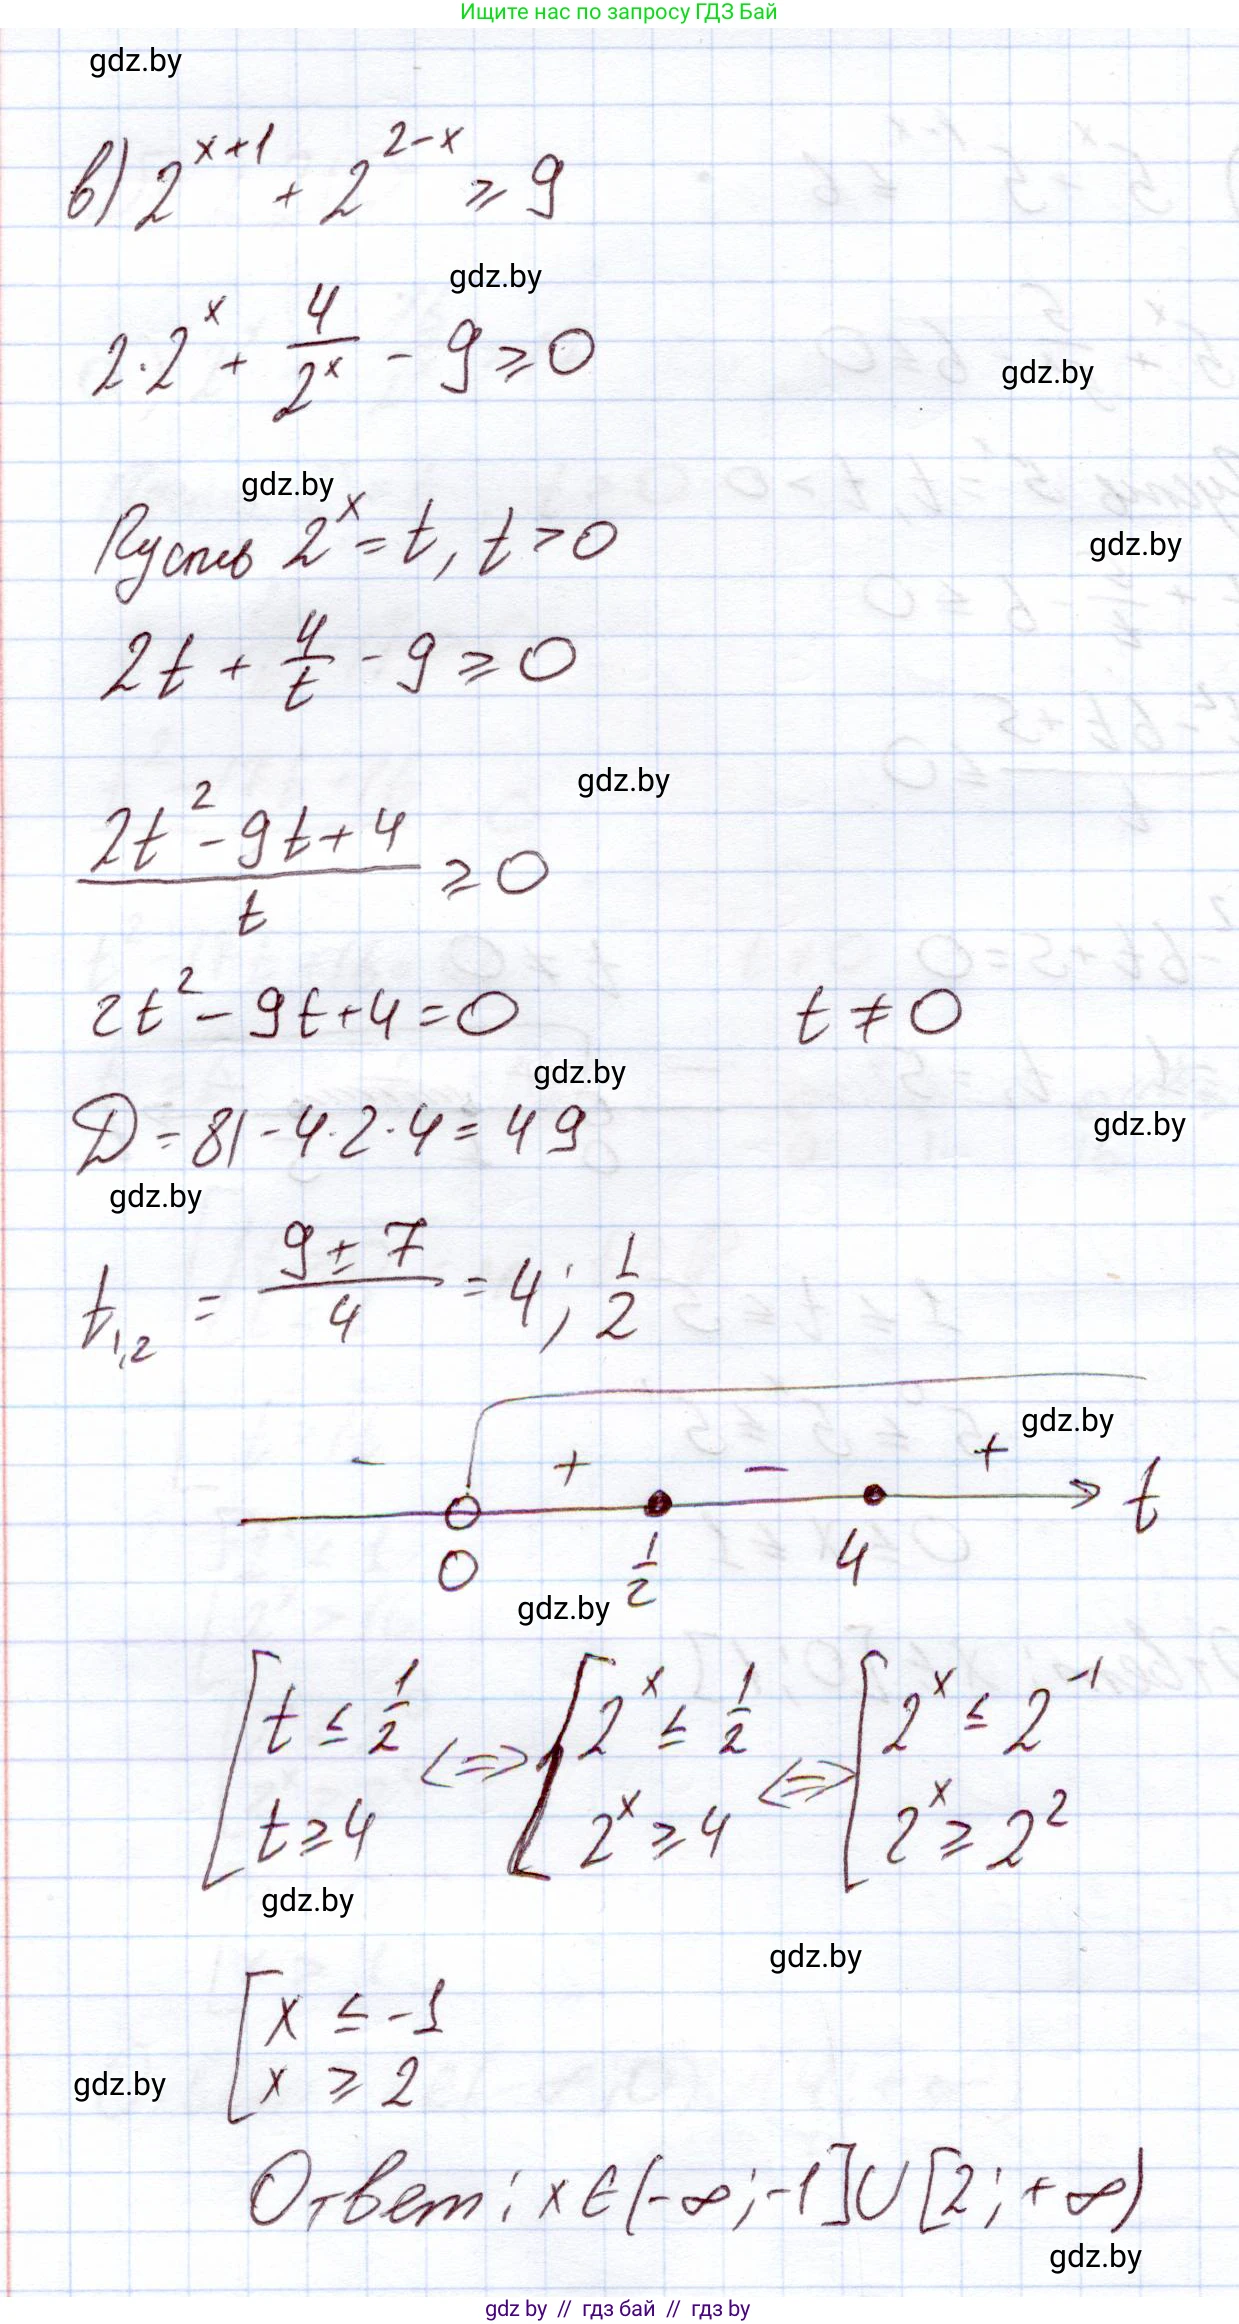 Ищите нас по запросу ГДЗ Бай
gdz.by
в) 2^{x+1} + 2^{2-x} ≥ 9
gdz.by
2·2^x + 4/2^x - 9 ≥ 0
gdz.by
gdz.by
Пусть 2^x = t, t > 0
gdz.by
2t + 4/t - 9 ≥ 0
gdz.by
(2t^2 - 9t + 4)/t ≥ 0
2t^2 - 9t + 4 = 0 t ≠ 0
gdz.by
D = 81 - 4·2·4 = 49
gdz.by
gdz.by
t_{1,2} = (9 ± 7)/4 = 4; 1/2
gdz.by
- + - + t
0 1/2 4
gdz.by
[ t ≤ 1/2 <=> [ 2^x ≤ 1/2 <=> [ 2^x ≤ 2^{-1}
t ≥ 4 2^x ≥ 4 2^x ≥ 2^2
gdz.by
gdz.by
[ x ≤ -1
x ≥ 2
gdz.by
Ответ: x ∈ (-∞; -1] ∪ [2; +∞)
gdz.by
gdz by // гдз бай // гдз by